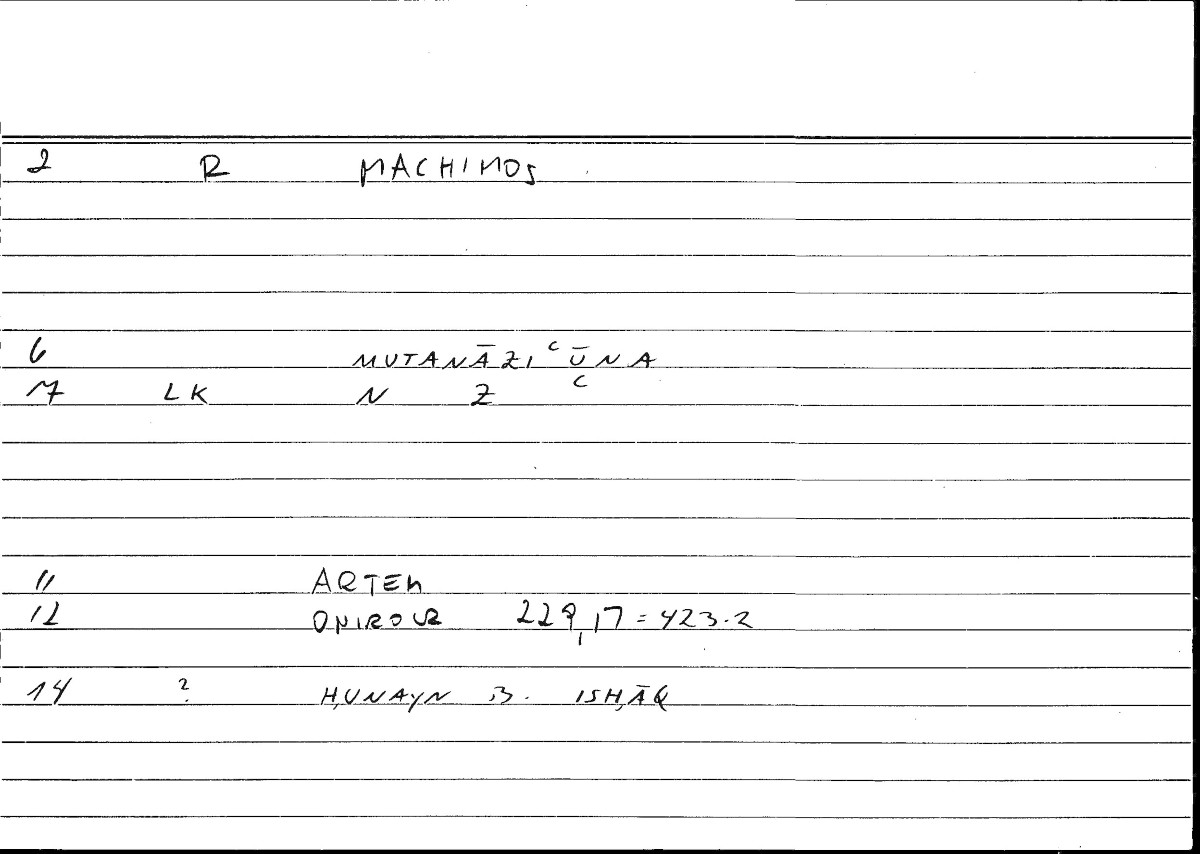 2 R MACHIMOS
6 MUTANĀZIʿŪNA
7 LK N Z ʿ
11 ARTEM
12 ONIROCR 229,17 = 423.2
14 ? ḤUNAYN B. ISḤĀQ